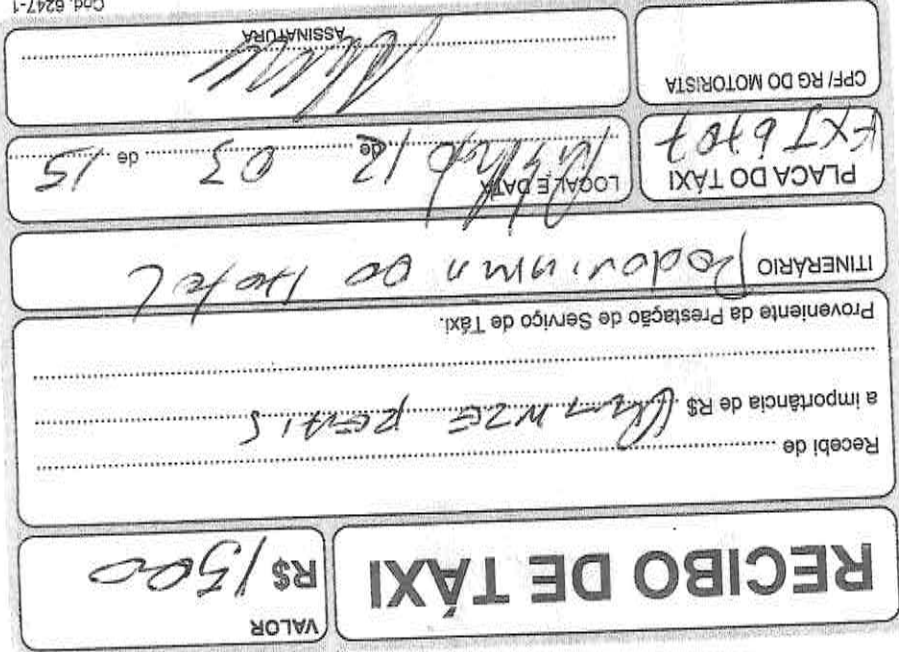 RECIBO DE TÁXI
VALOR
R$ 1500
Recebi de
a importância de R$ Quinze reais
Proveniente da Prestação de Serviço de Táxi.
ITINERÁRIO Rodoviaria ao Hotel
PLACA DO TÁXI
FXJ6707
LOCAL E DATA
12 de 03 de 15
CPF/ RG DO MOTORISTA
ASSINATURA
Cód. 6247-1